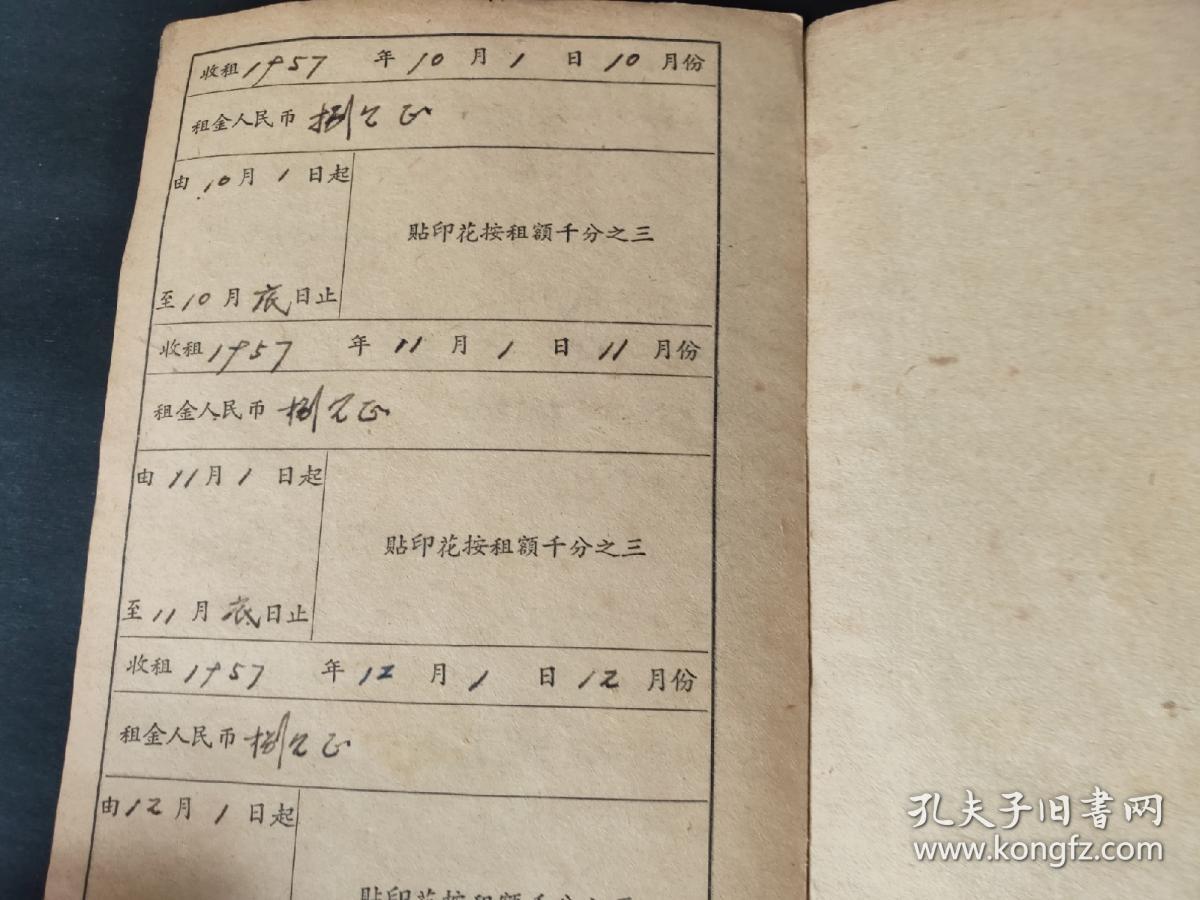 收租 1957 年 10 月 1 日 10 月份
租金人民币 捌元正
由 10 月 1 日起
貼印花按租額千分之三
至 10 月 底 日止
收租 1957 年 11 月 1 日 11 月份
租金人民币 捌元正
由 11 月 1 日起
貼印花按租額千分之三
至 11 月 底 日止
收租 1957 年 12 月 1 日 12 月份
租金人民币 捌元正
由 12 月 1 日起
貼印花按租額千分之三
孔夫子旧書网
www.kongfz.com